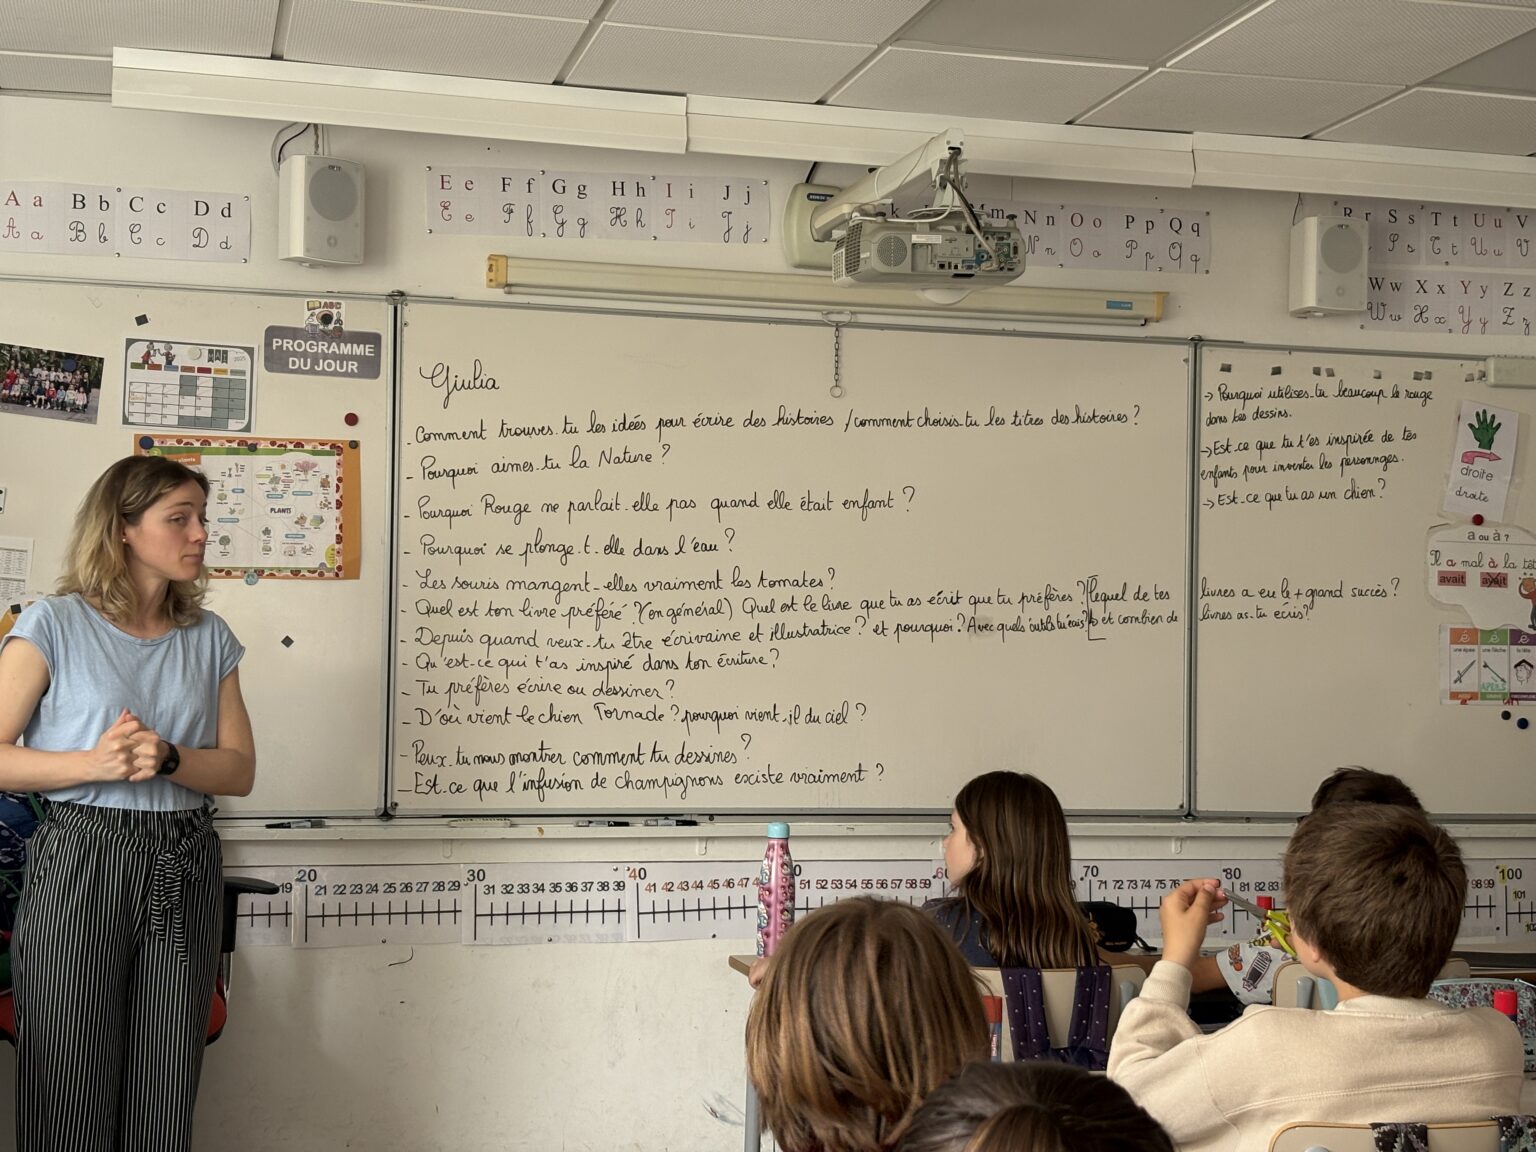 A a B b C c D d
A a B b C c D d
E e F f G g H h I i J j
E e F f G g H h I i J j
M m N n O o P p Q q
N n O o P p Q q
R r S s T t U u V
S s T t U u V
W w X x Y y Z z
W w X x Y y Z z
ABC
PROGRAMME
DU JOUR
MAI 2025
PLANTS
Giulia
- Comment trouves-tu les idées pour écrire des histoires / comment choisis-tu les titres des histoires ?
- Pourquoi aimes-tu la Nature ?
- Pourquoi Rouge ne parlait-elle pas quand elle était enfant ?
- Pourquoi se plonge-t-elle dans l'eau ?
- Les souris mangent-elles vraiment les tomates ?
- Quel est ton livre préféré ? (en général) Quel est le livre que tu as écrit que tu préfères ? lequel de tes livres a eu le + grand succès ?
- Depuis quand veux-tu être écrivaine et illustratrice ? et pourquoi ? Avec quels outils tu écris ? et combien de livres as-tu écris ?
- Qu'est-ce qui t'as inspiré dans ton écriture ?
- Tu préfères écrire ou dessiner ?
- D'où vient le chien Tornade ? pourquoi vient-il du ciel ?
- Peux-tu nous montrer comment tu dessines ?
- Est-ce que l'infusion de champignons existe vraiment ?
→ Pourquoi utilises-tu beaucoup le rouge
dans tes dessins.
→ Est-ce que tu t'es inspirée de tes
enfants pour inventer les personnages.
→ Est-ce que tu as un chien ?
droite
droite
a ou à ?
Il a mal à la tê
avait avait
é è ê
une épée une flèche la tête
APRÈS
19 20 21 22 23 24 25 26 27 28 29 30 31 32 33 34 35 36 37 38 39 40 41 42 43 44 45 46 47 51 52 53 54 55 56 57 58 59 70 71 72 73 74 75 76 80 81 82 83 98 99 100 101